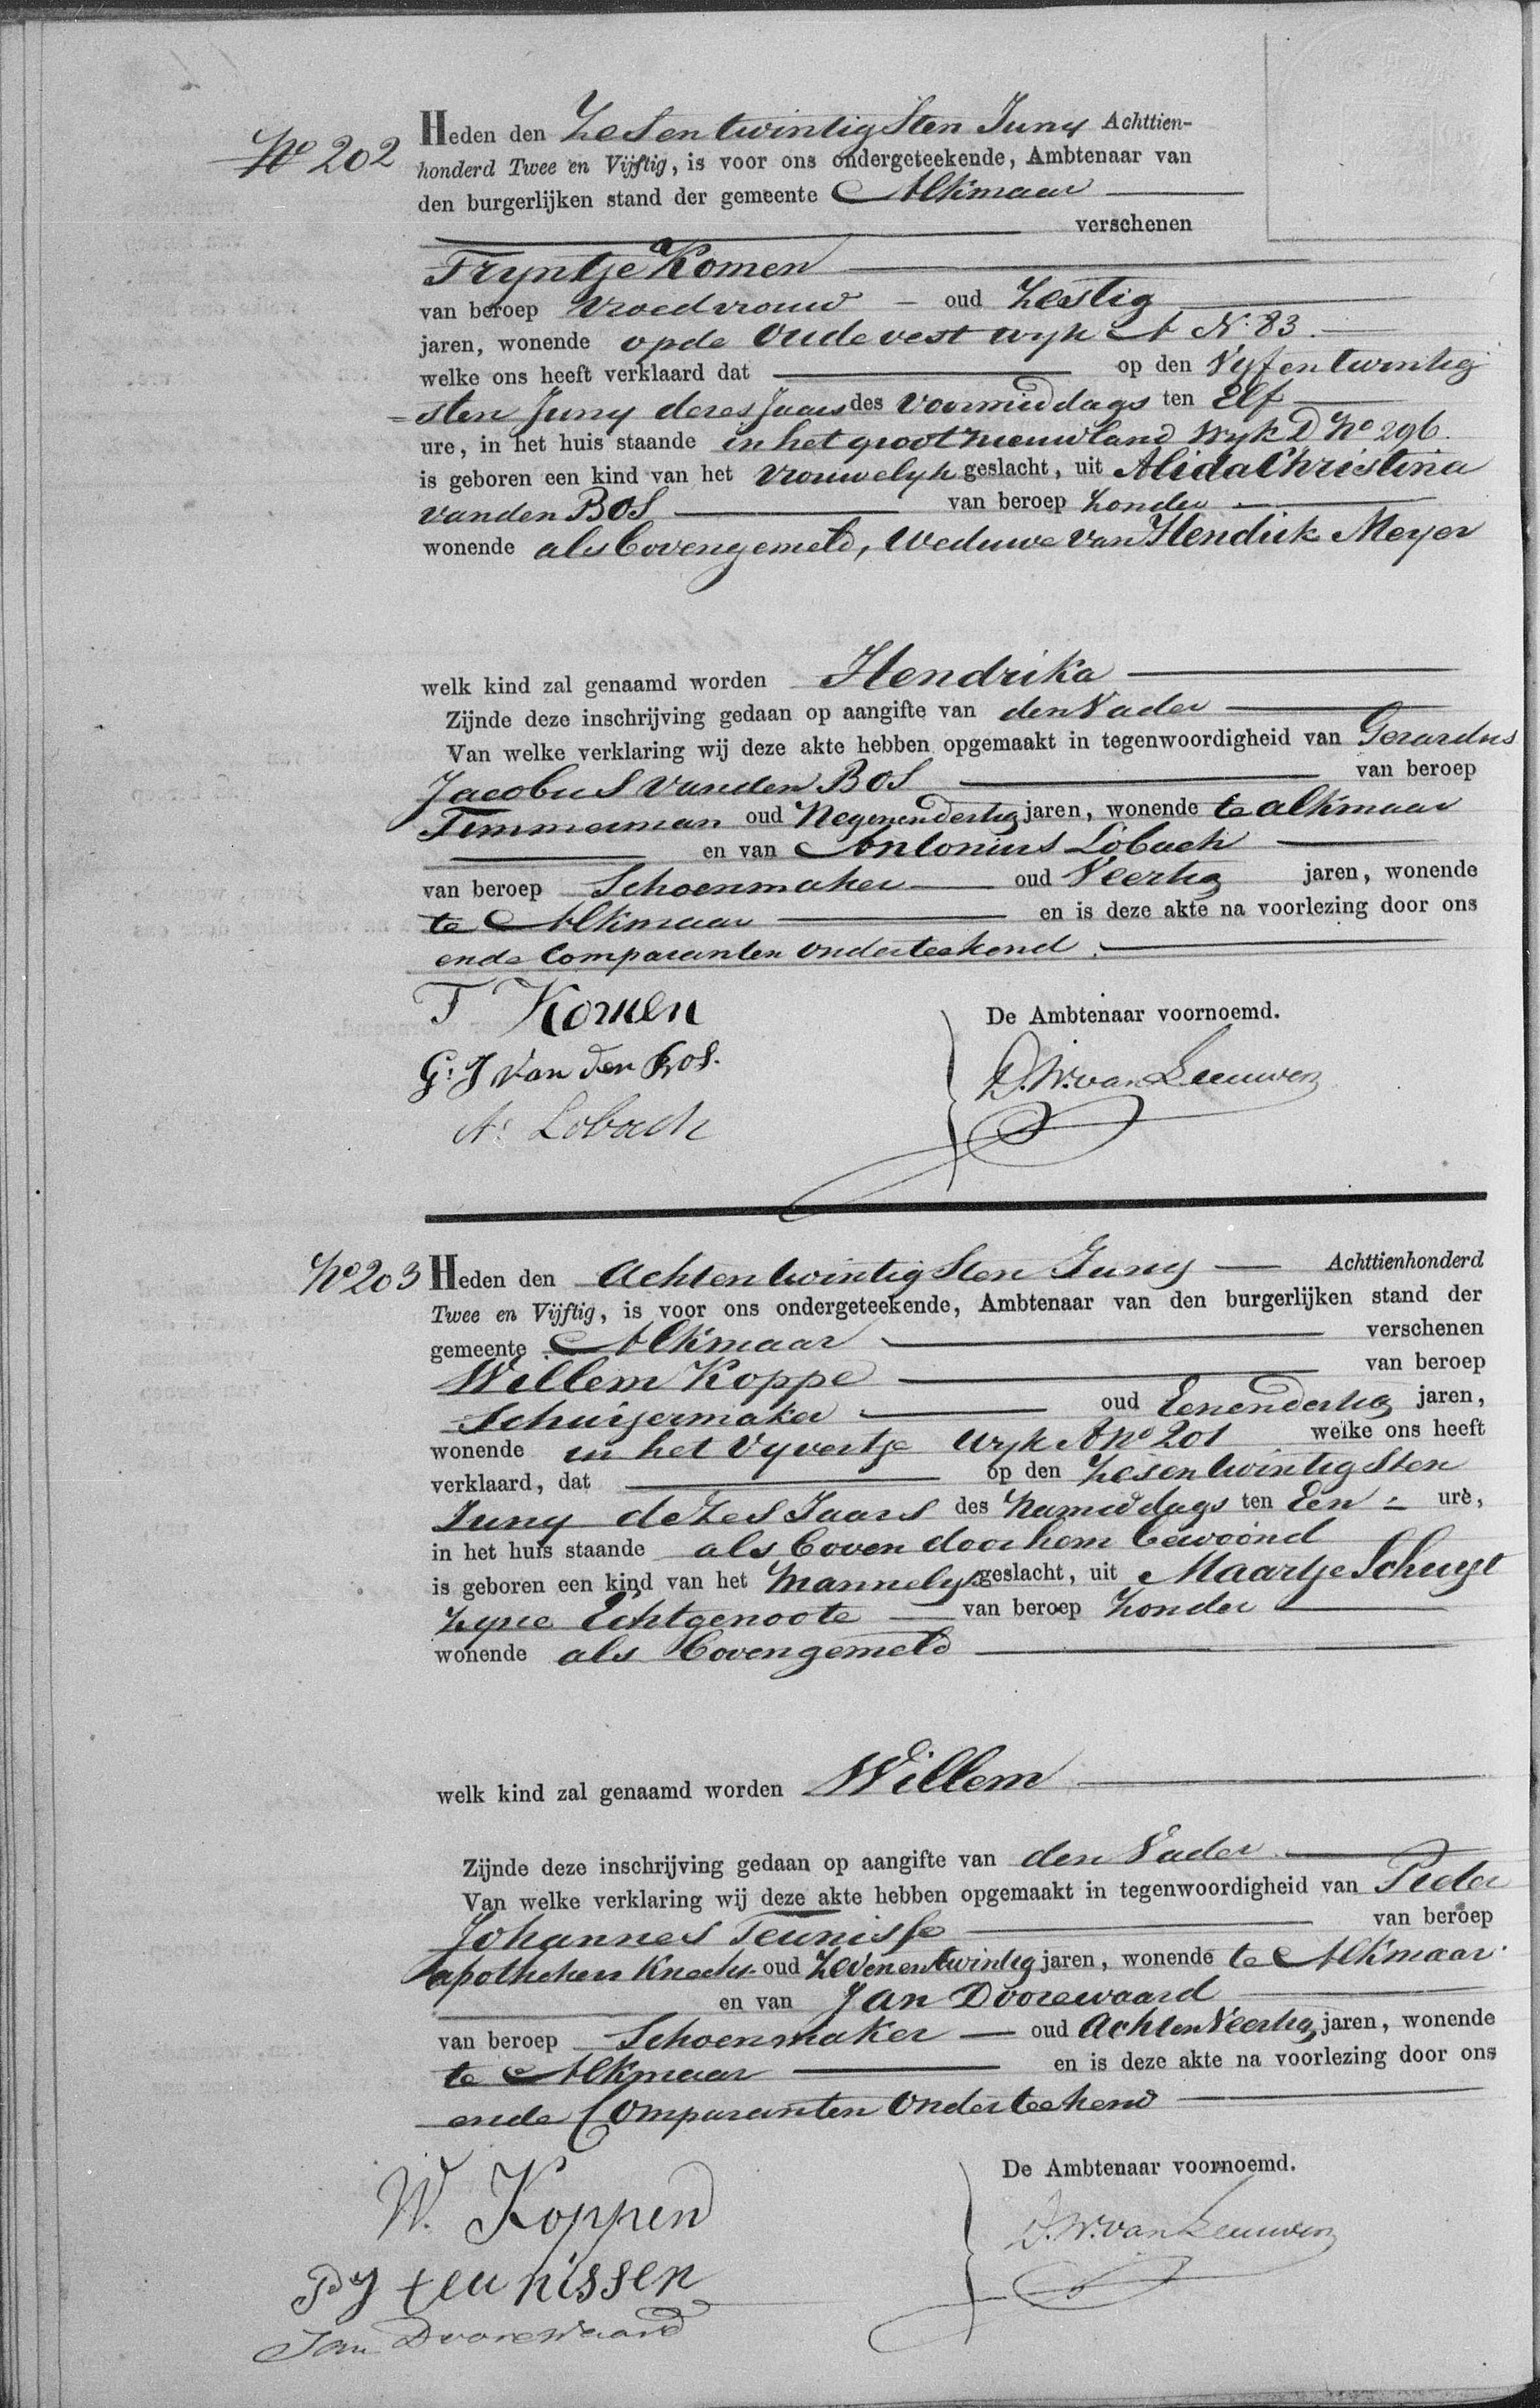 No 202
Heden den Zesentwintigsten Juny Achttien-
honderd Twee en Vijftig, is voor ons ondergeteekende, Ambtenaar van
den burgerlijken stand der gemeente Alkmaar
verschenen
Tryntje Komen
van beroep Vroedvrouw - oud Zestig
jaren, wonende op de Oudevest wyk A N. 83.
welke ons heeft verklaard dat op den Vyfentwintig
=sten Juny dezes Jaars des Voormiddags ten Elf
ure, in het huis staande in het groot nieuwland Wyk D No 296.
is geboren een kind van het Vrouwelyk geslacht, uit Alida Christina
vanden Bos van beroep Zonder
wonende als bovengemeld, Weduwe van Hendrik Meyer
welk kind zal genaamd worden Hendrika
Zijnde deze inschrijving gedaan op aangifte van den Vader
Van welke verklaring wij deze akte hebben opgemaakt in tegenwoordigheid van Gerardus
Jacobus vanden Bos van beroep
Timmerman oud Negenendertig jaren, wonende te alkmaar
en van Antonius Lobach
van beroep Schoenmaker oud Veertig jaren, wonende
te Alkmaar en is deze akte na voorlezing door ons
ende Comparanten onderteekend.
T Komen
De Ambtenaar voornoemd.
G. J van den Bos.
D. W. van Leeuwen
A. Lobach
No 203 Heden den Achtentwintigsten Juny Achttienhonderd
Twee en Vijftig, is voor ons ondergeteekende, Ambtenaar van den burgerlijken stand der
gemeente Alkmaar verschenen
Willem Koppe van beroep
Schuijermaker oud Eenendertig jaren,
wonende in het Vyvertje Wyk A No 201 welke ons heeft
verklaard, dat op den Zesentwintigsten
Juny dezes Jaars des Namiddags ten Een = ure,
in het huis staande als boven door hem bewoond
is geboren een kind van het Mannelyk geslacht, uit Maartje Schuyt
Zyne Echtgenoote van beroep Zonder
wonende als bovengemeld
welk kind zal genaamd worden Willem
Zijnde deze inschrijving gedaan op aangifte van den Vader
Van welke verklaring wij deze akte hebben opgemaakt in tegenwoordigheid van Pieter
Johannes Teunisse van beroep
apothekers Knecht oud Zevenentwintig jaren, wonende te Alkmaar.
en van Jan Doorewaard
van beroep Schoenmaker oud Achtenveertig jaren, wonende
te Alkmaar en is deze akte na voorlezing door ons
ende Comparanten Onderteekend
De Ambtenaar voornoemd.
W. Koppen
D. W. van Leeuwen
P J teunissen
Jan Doorewaard